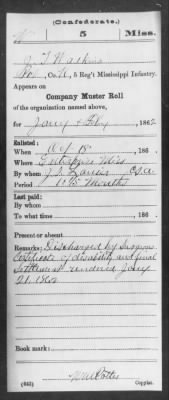 (Confederate.)
5 Miss.
J. T. Watkins
Co. , 5 Reg't Mississippi Infantry.
Appears on
Company Muster Roll
of the organization named above,
for Jany & Feby , 1862.
Enlisted:
When Oct 18 , 186 .
Where Enterprise Miss
By whom
Period Months
Last paid:
By whom
To what time , 186 .
Present or absent
Remarks: Discharged by Surgeons
Certificate of disability and final
Settlement rendered Jany
21. 1862
Book mark:
(642) Copyist.